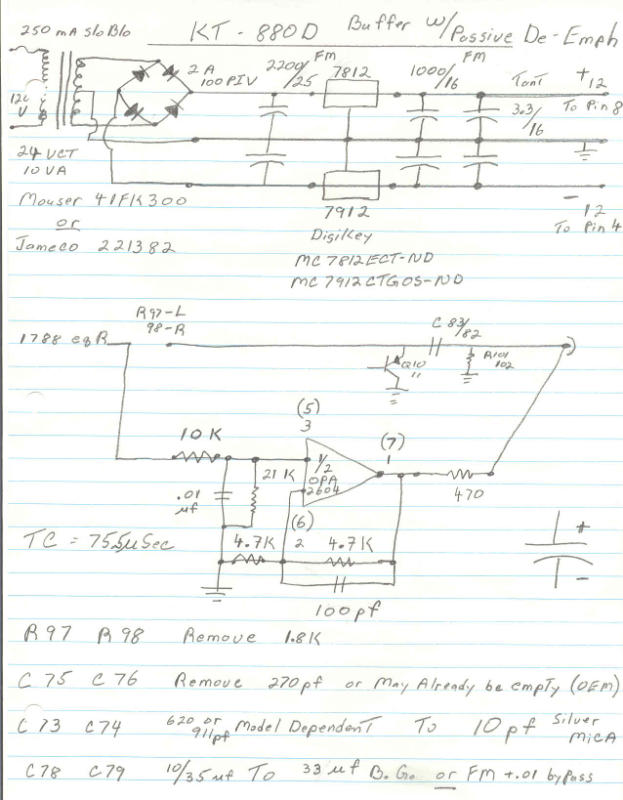 KT - 880D Buffer w/Passive De-Emph
250 mA SloBlo
2 A
100 PIV
FM
2200/25
7812
FM
1000/16
Tant
3.3/16
+12
To Pin 8
24 VCT
10 VA
Mouser 41FK300
or
Jameco 221382
7912
DigiKey
MC7812ECT-ND
MC7912CTGOS-ND
-12
To Pin 4
R97-L
98-R
1788 eqR
C 83/82
Q10
11
R101
102
(5)
3
10K
(7)
1
1/2
OPA
2604
21K
.01
µf
470
(6)
2
TC = 75.5µSec
4.7K
4.7K
+
-
100pf
R97 R98 Remove 1.8K
C75 C76 Remove 270pf or May Already be empty (OEM)
C73 C74 620 or 911pf Model Dependent To 10pf Silver Mica
C78 C79 10/35uf To 33uf B.G. or FM +.01 bypass